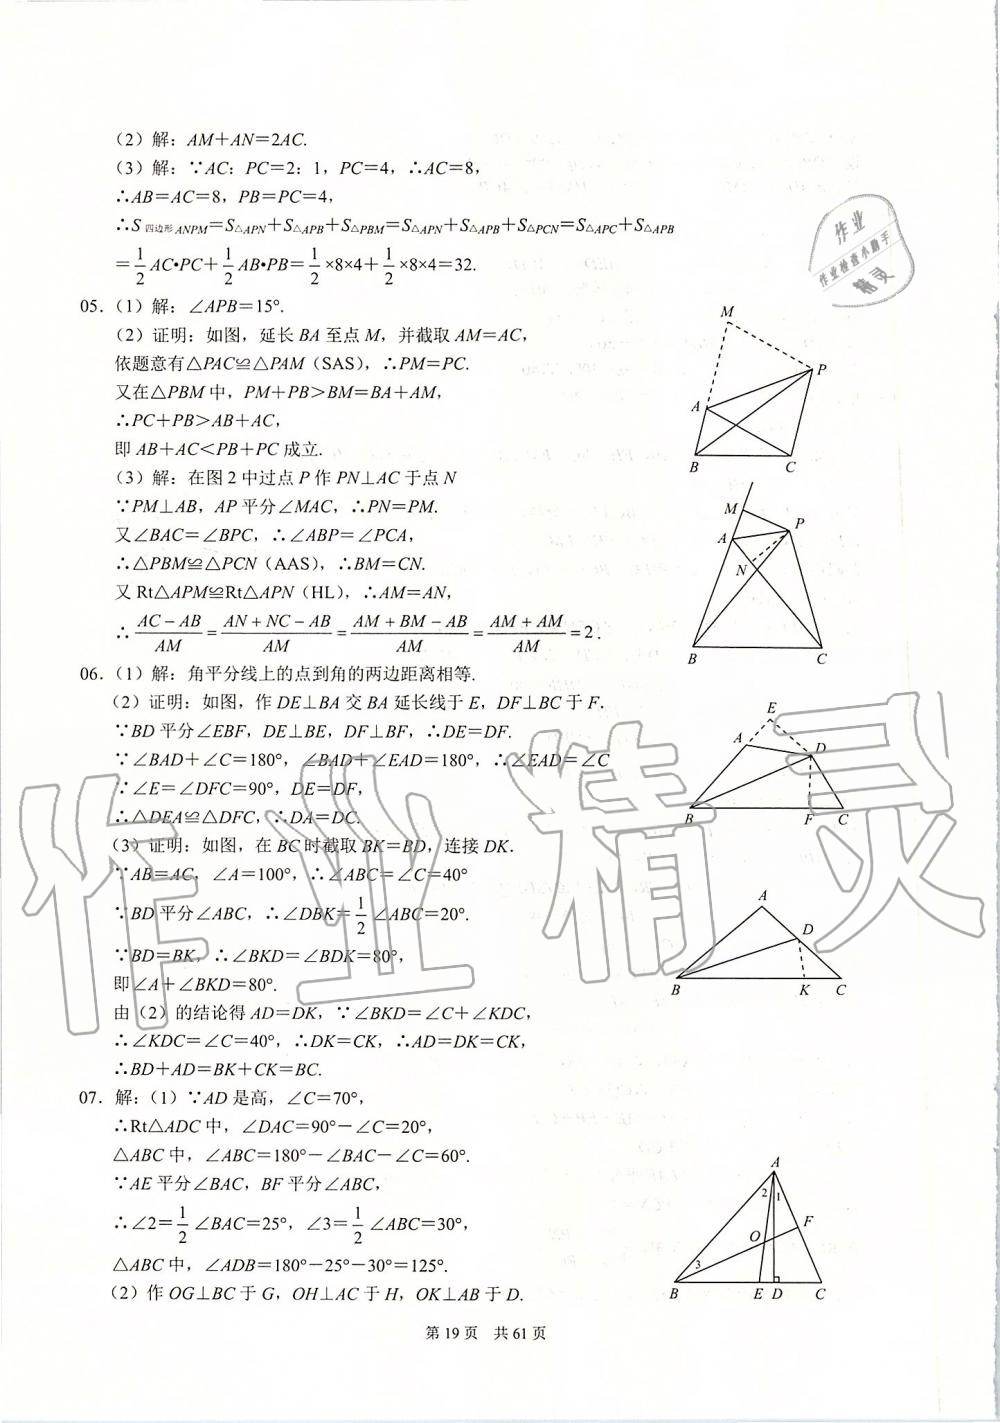 （2）解：AM＋AN＝2AC.
（3）解：∵AC：PC＝2：1，PC＝4，∴AC＝8，
∴AB＝AC＝8，PB＝PC＝4，
∴S四边形ANPM＝S△APN＋S△APB＋S△PBM＝S△APN＋S△APB＋S△PCN＝S△APC＋S△APB
＝1/2 AC•PC＋1/2 AB•PB＝1/2×8×4＋1/2×8×4＝32.
05．（1）解：∠APB＝15°.
（2）证明：如图，延长 BA 至点 M，并截取 AM＝AC，
依题意有△PAC≌△PAM（SAS），∴PM＝PC.
又在△PBM 中，PM＋PB＞BM＝BA＋AM，
∴PC＋PB＞AB＋AC，
即 AB＋AC＜PB＋PC 成立.
（3）解：在图 2 中过点 P 作 PN⊥AC 于点 N
∵PM⊥AB，AP 平分∠MAC，∴PN＝PM.
又∠BAC＝∠BPC，∴∠ABP＝∠PCA，
∴△PBM≌△PCN（AAS），∴BM＝CN.
又 Rt△APM≌Rt△APN（HL），∴AM＝AN，
∴(AC－AB)/AM＝(AN＋NC－AB)/AM＝(AM＋BM－AB)/AM＝(AM＋AM)/AM＝2．
06．（1）解：角平分线上的点到角的两边距离相等.
（2）证明：如图，作 DE⊥BA 交 BA 延长线于 E，DF⊥BC 于 F.
∵BD 平分∠EBF，DE⊥BE，DF⊥BF，∴DE＝DF.
∵∠BAD＋∠C＝180°，∠BAD＋∠EAD＝180°，∴∠EAD＝∠C
∵∠E＝∠DFC＝90°，DE＝DF，
∴△DEA≌△DFC，∴DA＝DC.
（3）证明：如图，在 BC 时截取 BK＝BD，连接 DK．
∵AB＝AC，∠A＝100°，∴∠ABC＝∠C＝40°
∵BD 平分∠ABC，∴∠DBK＝1/2∠ABC＝20°.
∵BD＝BK，∴∠BKD＝∠BDK＝80°，
即∠A＋∠BKD＝80°.
由（2）的结论得 AD＝DK，∵∠BKD＝∠C＋∠KDC，
∴∠KDC＝∠C＝40°，∴DK＝CK，∴AD＝DK＝CK，
∴BD＋AD＝BK＋CK＝BC.
07．解：（1）∵AD 是高，∠C＝70°，
∴Rt△ADC 中，∠DAC＝90°－∠C＝20°，
△ABC 中，∠ABC＝180°－∠BAC－∠C＝60°.
∵AE 平分∠BAC，BF 平分∠ABC，
∴∠2＝1/2∠BAC＝25°，∠3＝1/2∠ABC＝30°，
△ABC 中，∠ADB＝180°－25°－30°＝125°.
（2）作 OG⊥BC 于 G，OH⊥AC 于 H，OK⊥AB 于 D.
M
P
A
B
C
M
P
A
N
B
C
E
A
D
B
F
C
A
D
B
K
C
A
2
1
F
O
3
B
E
D
C
作业
作业检查小助手
精灵
作业精灵
第 19 页 共 61 页